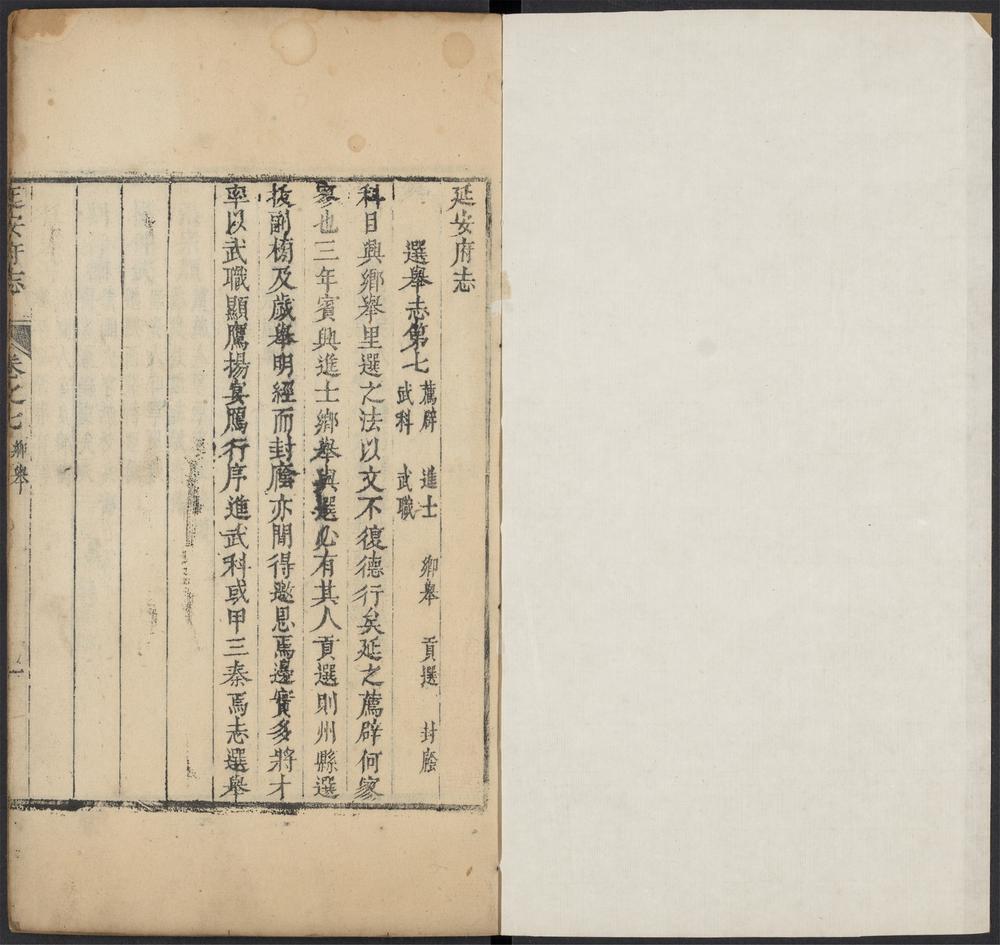 延安府志
選舉志第七 薦辟 進士 鄉舉 貢選 封廕
武科 武職
科目興鄉舉里選之法以文不復德行矣延之薦辟何寥
寥也三年賓興進士鄉舉與選必有其人貢選則州縣選
拔副榜及歲舉明經而封廕亦間得邀恩焉邊賓多將才
率以武職顯鷹揚宴鴈行序進武科或甲三秦焉志選舉
延安府志 卷之七 鄉舉 一